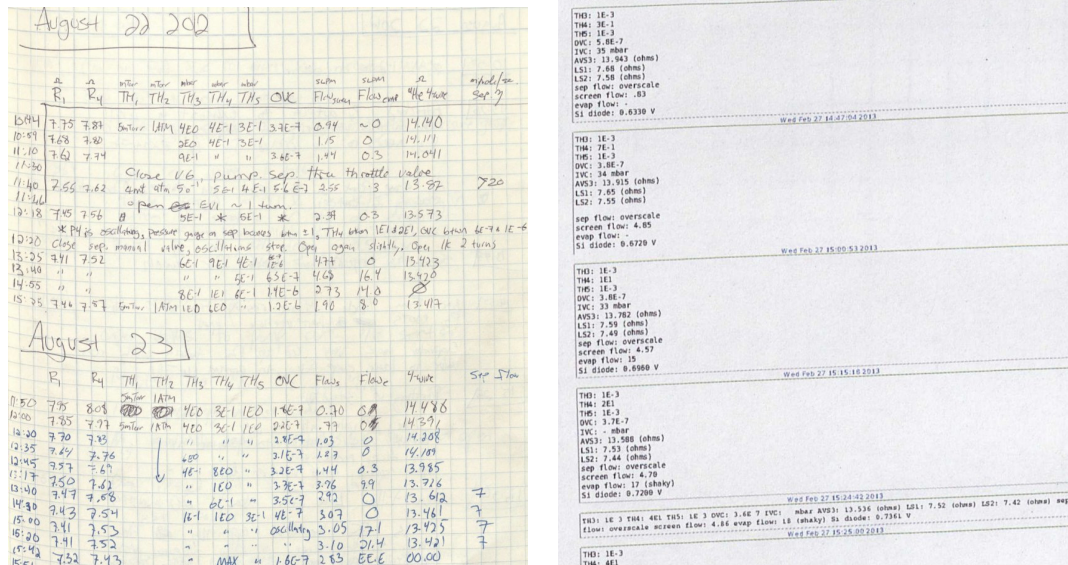 August 22 2012
Ω Ω mTorr mTorr mbar mbar mbar sLPM sLPM Ω
R1 R4 TH1 TH2 TH3 TH4 TH5 OVC Flow Flow 4He 4wire Sep.
7.75 7.87 5mTorr 1ATM 4E0 4E-1 3E-1 3.7E-7 0.94 ~0 14.140
10:59 7.68 7.80 2E0 4E-1 3E-1 1.15 0 14.111
11:10 7.62 7.74 9E-1 " " 3.6E-7 1.44 0.3 14.041
11:30 Close V6, pump sep. thru throttle valve
11:40 7.55 7.62 5E-1 4E-1 5.6E-7 2.55 3 13.82 >20
11:46 open EV1 ~ 1 turn.
12:18 7.45 7.56 5E-1 * 5E-1 * 2.39 0.3 13.573
* P4 is oscillating, pressure gauge on sep bounces btwn ±1, TH4 btwn 1E1&2E1, OVC btwn 6E-7 & 1E-6
12:20 Close sep. manual valve, oscillations stop. Open again slightly. Open it 2 turns
13:25 7.41 7.52 6E-1 9E-1 4E-1 4.77 0 13.423
13:40 " " " " 5E-1 6.5E-7 4.68 16.4 13.420
14:55 " " 8E-1 1E1 6E-1 1.4E-6 2.73 14.0 Ø
15:25 7.46 7.57 5mTorr 1ATM 1E0 6E0 " 1.2E-6 1.90 8.0 13.417
August 23
R1 R4 TH1 TH2 TH3 TH4 TH5 OVC Flows Flowe 4-wire Sep flow
5mTorr 1ATM
11:50 7.95 8.08 4E0 3E-1 1E0 1.6E-7 0.70 14.486
12:00 7.85 7.97 5mTorr 1ATM 4E0 3E-1 1E0 2.2E-7 .77 14.391
12:20 7.70 7.83 " " " 2.8E-7 1.03 0 14.208
12:35 7.64 7.76 6E0 " " 3.1E-7 1.27 0 14.109
12:45 7.57 7.69 4E-1 8E0 " 3.2E-7 1.44 0.3 13.985
13:17 7.50 7.62 " 1E0 " 3.7E-7 3.76 9.9 13.716
13:40 7.47 7.58 " 6E-1 " 3.5E-7 2.92 0 13.612 7
7.43 7.54 1E-1 1E0 3E-1 4E-7 3.07 0 13.461 7
15:00 7.41 7.53 " " " oscillating 3.05 17.1 13.425 7
15:20 7.41 7.52 " " " " 3.10 21.4 13.421 7
15:42 7.32 7.43 MAX " 1.6E-7 2.83 EE.E 00.00
TH3: 1E-3
TH4: 3E-1
TH5: 1E-3
OVC: 5.8E-7
IVC: 35 mbar
AVS3: 13.943 (ohms)
LS1: 7.66 (ohms)
LS2: 7.58 (ohms)
sep flow: overscale
screen flow: .83
evap flow: -
Si diode: 0.6330 V
Wed Feb 27 14:47:04 2013
TH3: 1E-3
TH4: 7E-1
TH5: 1E-3
OVC: 3.8E-7
IVC: 34 mbar
AVS3: 13.915 (ohms)
LS1: 7.65 (ohms)
LS2: 7.55 (ohms)
sep flow: overscale
screen flow: 4.85
evap flow: -
Si diode: 0.6720 V
Wed Feb 27 15:00:53 2013
TH3: 1E-3
TH4: 1E1
TH5: 1E-3
OVC: 3.8E-7
IVC: 33 mbar
AVS3: 13.782 (ohms)
LS1: 7.59 (ohms)
LS2: 7.49 (ohms)
sep flow: overscale
screen flow: 4.57
evap flow: 15
Si diode: 0.6980 V
Wed Feb 27 15:15:18 2013
TH3: 1E-3
TH4: 2E1
TH5: 1E-3
OVC: 3.7E-7
IVC: - mbar
AVS3: 13.588 (ohms)
LS1: 7.53 (ohms)
LS2: 7.44 (ohms)
sep flow: overscale
screen flow: 4.70
evap flow: 17 (shaky)
Si diode: 0.7200 V
Wed Feb 27 15:24:42 2013
TH3: 1E 3 TH4: 4E1 TH5: 1E 3 OVC: 3.6E 7 IVC: mbar AVS3: 13.536 (ohms) LS1: 7.52 (ohms) LS2: 7.42 (ohms) sep
flow: overscale screen flow: 4.86 evap flow: 18 (shaky) Si diode: 0.7361 V
Wed Feb 27 15:25:00 2013
TH3: 1E-3
TH4: 4E1